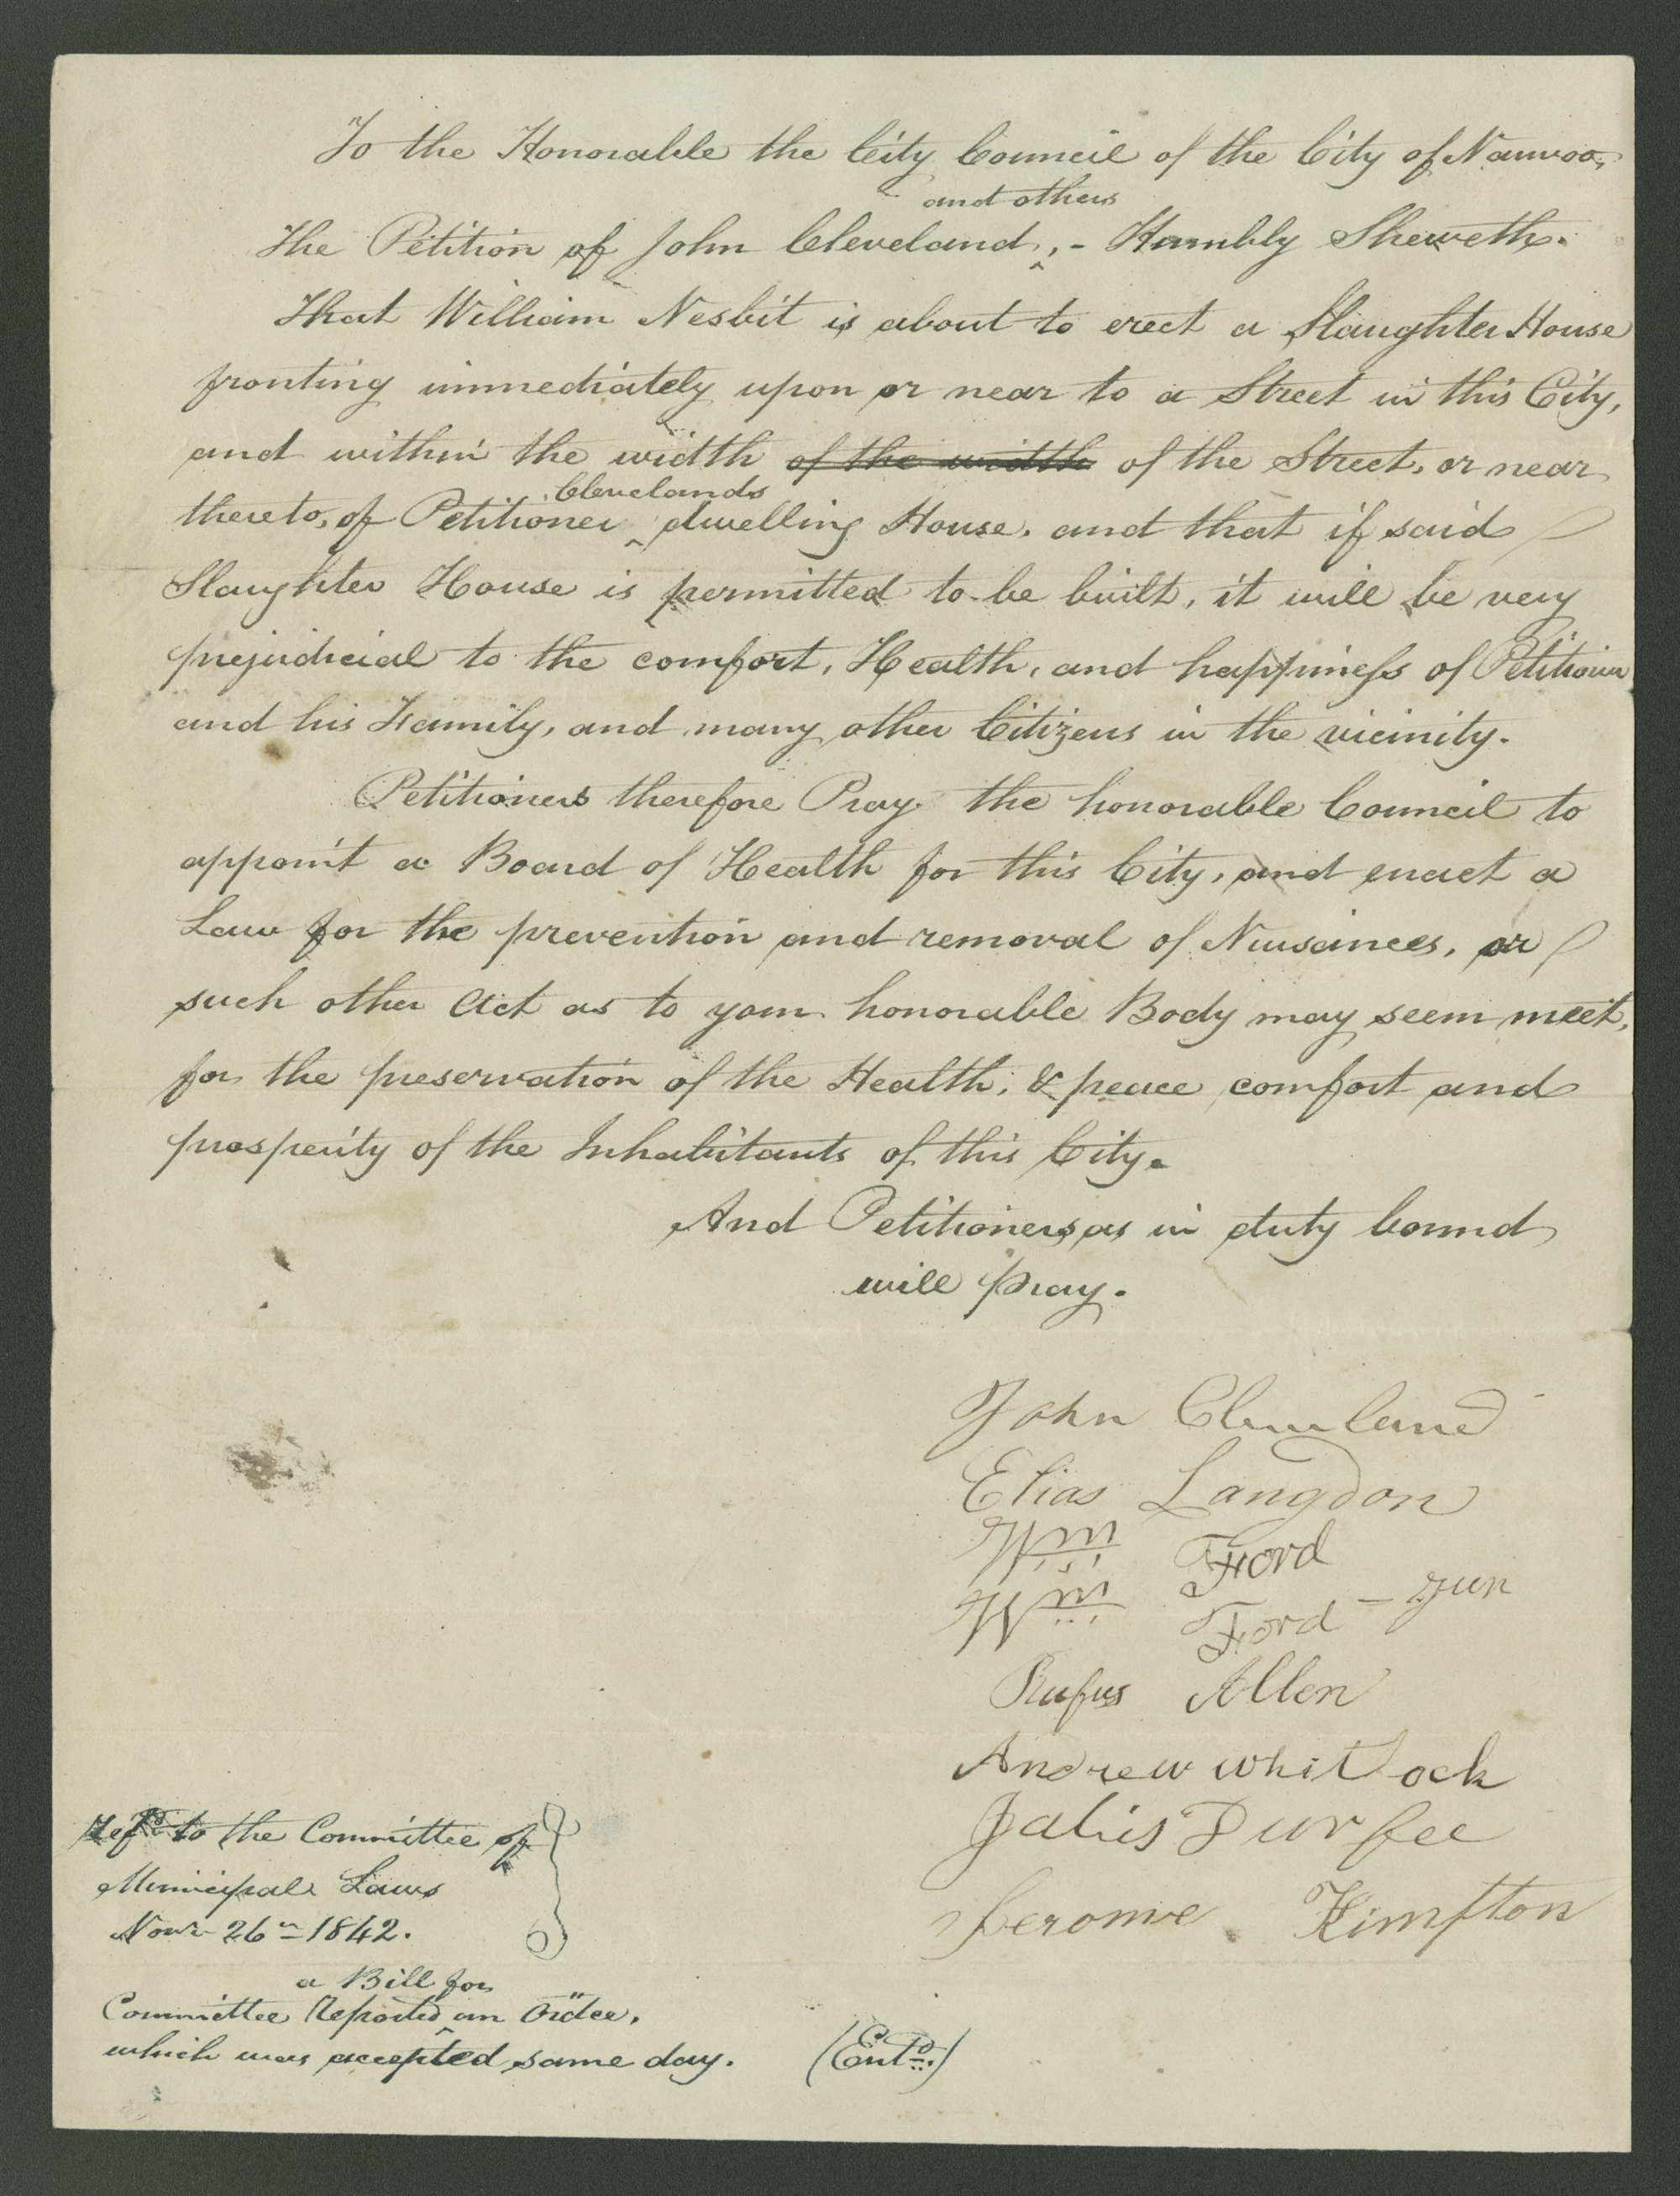 To the Honorable the City Council of the City of Nauvoo,
and others
The Petition of John Cleveland ‸,- Humbly Sheweth.
That William Nesbit is about to erect a Slaughter House
fronting immediately upon or near to a Street in this City,
and within the width of the width of the Street, or near
Clevelands
thereto, of Petitioner ‸ dwelling House, and that if said
Slaughter House is permitted to be built, it will be very
prejudicial to the comfort, Health, and happiness of Petitioner
and his Family, and many other Citizens in the vicinity.
Petitioners therefore Pray the honorable Council to
appoint a Board of Health for this City, and enact a
Law for the prevention and removal of Nuisances, or
such other Act as to your honorable Body may seem meet,
for the preservation of the Health, & peace comfort and
prosperity of the Inhabitants of this City.
And Petitioners as in duty bound
will pray.
John Cleveland
Elias Langdon
Wm Ford
Wm Ford – Jun
Rufus Allen
Andrew Whitlock
Jabis Durfee
Jerome Kimpton
Refd to the Committee of
Municipal Laws
Novr 26th 1842.
a Bill for
Committee Reported ‸ an Order,
which was accepted same day.
(Entd.)